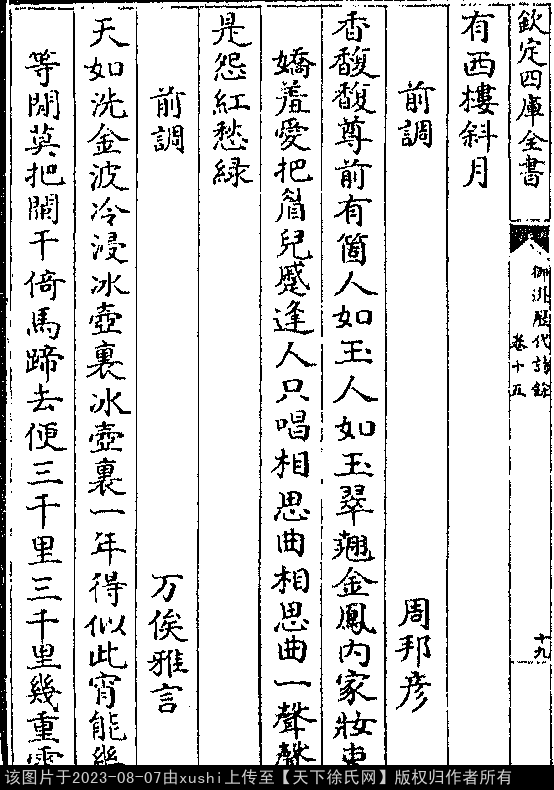 欽定四庫全書
御選歷代詩餘
卷十五
十九
有西樓斜月
前調 周邦彥
香馥馥尊前有箇人如玉人如玉翠翹金鳳内家妝束
嬌羞愛把眉兒蹙逢人只唱相思曲相思曲一聲聲
是怨紅愁緑
前調 万俟雅言
天如洗金波冷浸冰壺裏冰壺裏一年得似此宵能幾
等閒莫把闌干倚馬蹄去便三千里三千里幾重雲
该图片于2023-08-07由xushi上传至【天下徐氏网】版权归作者所有